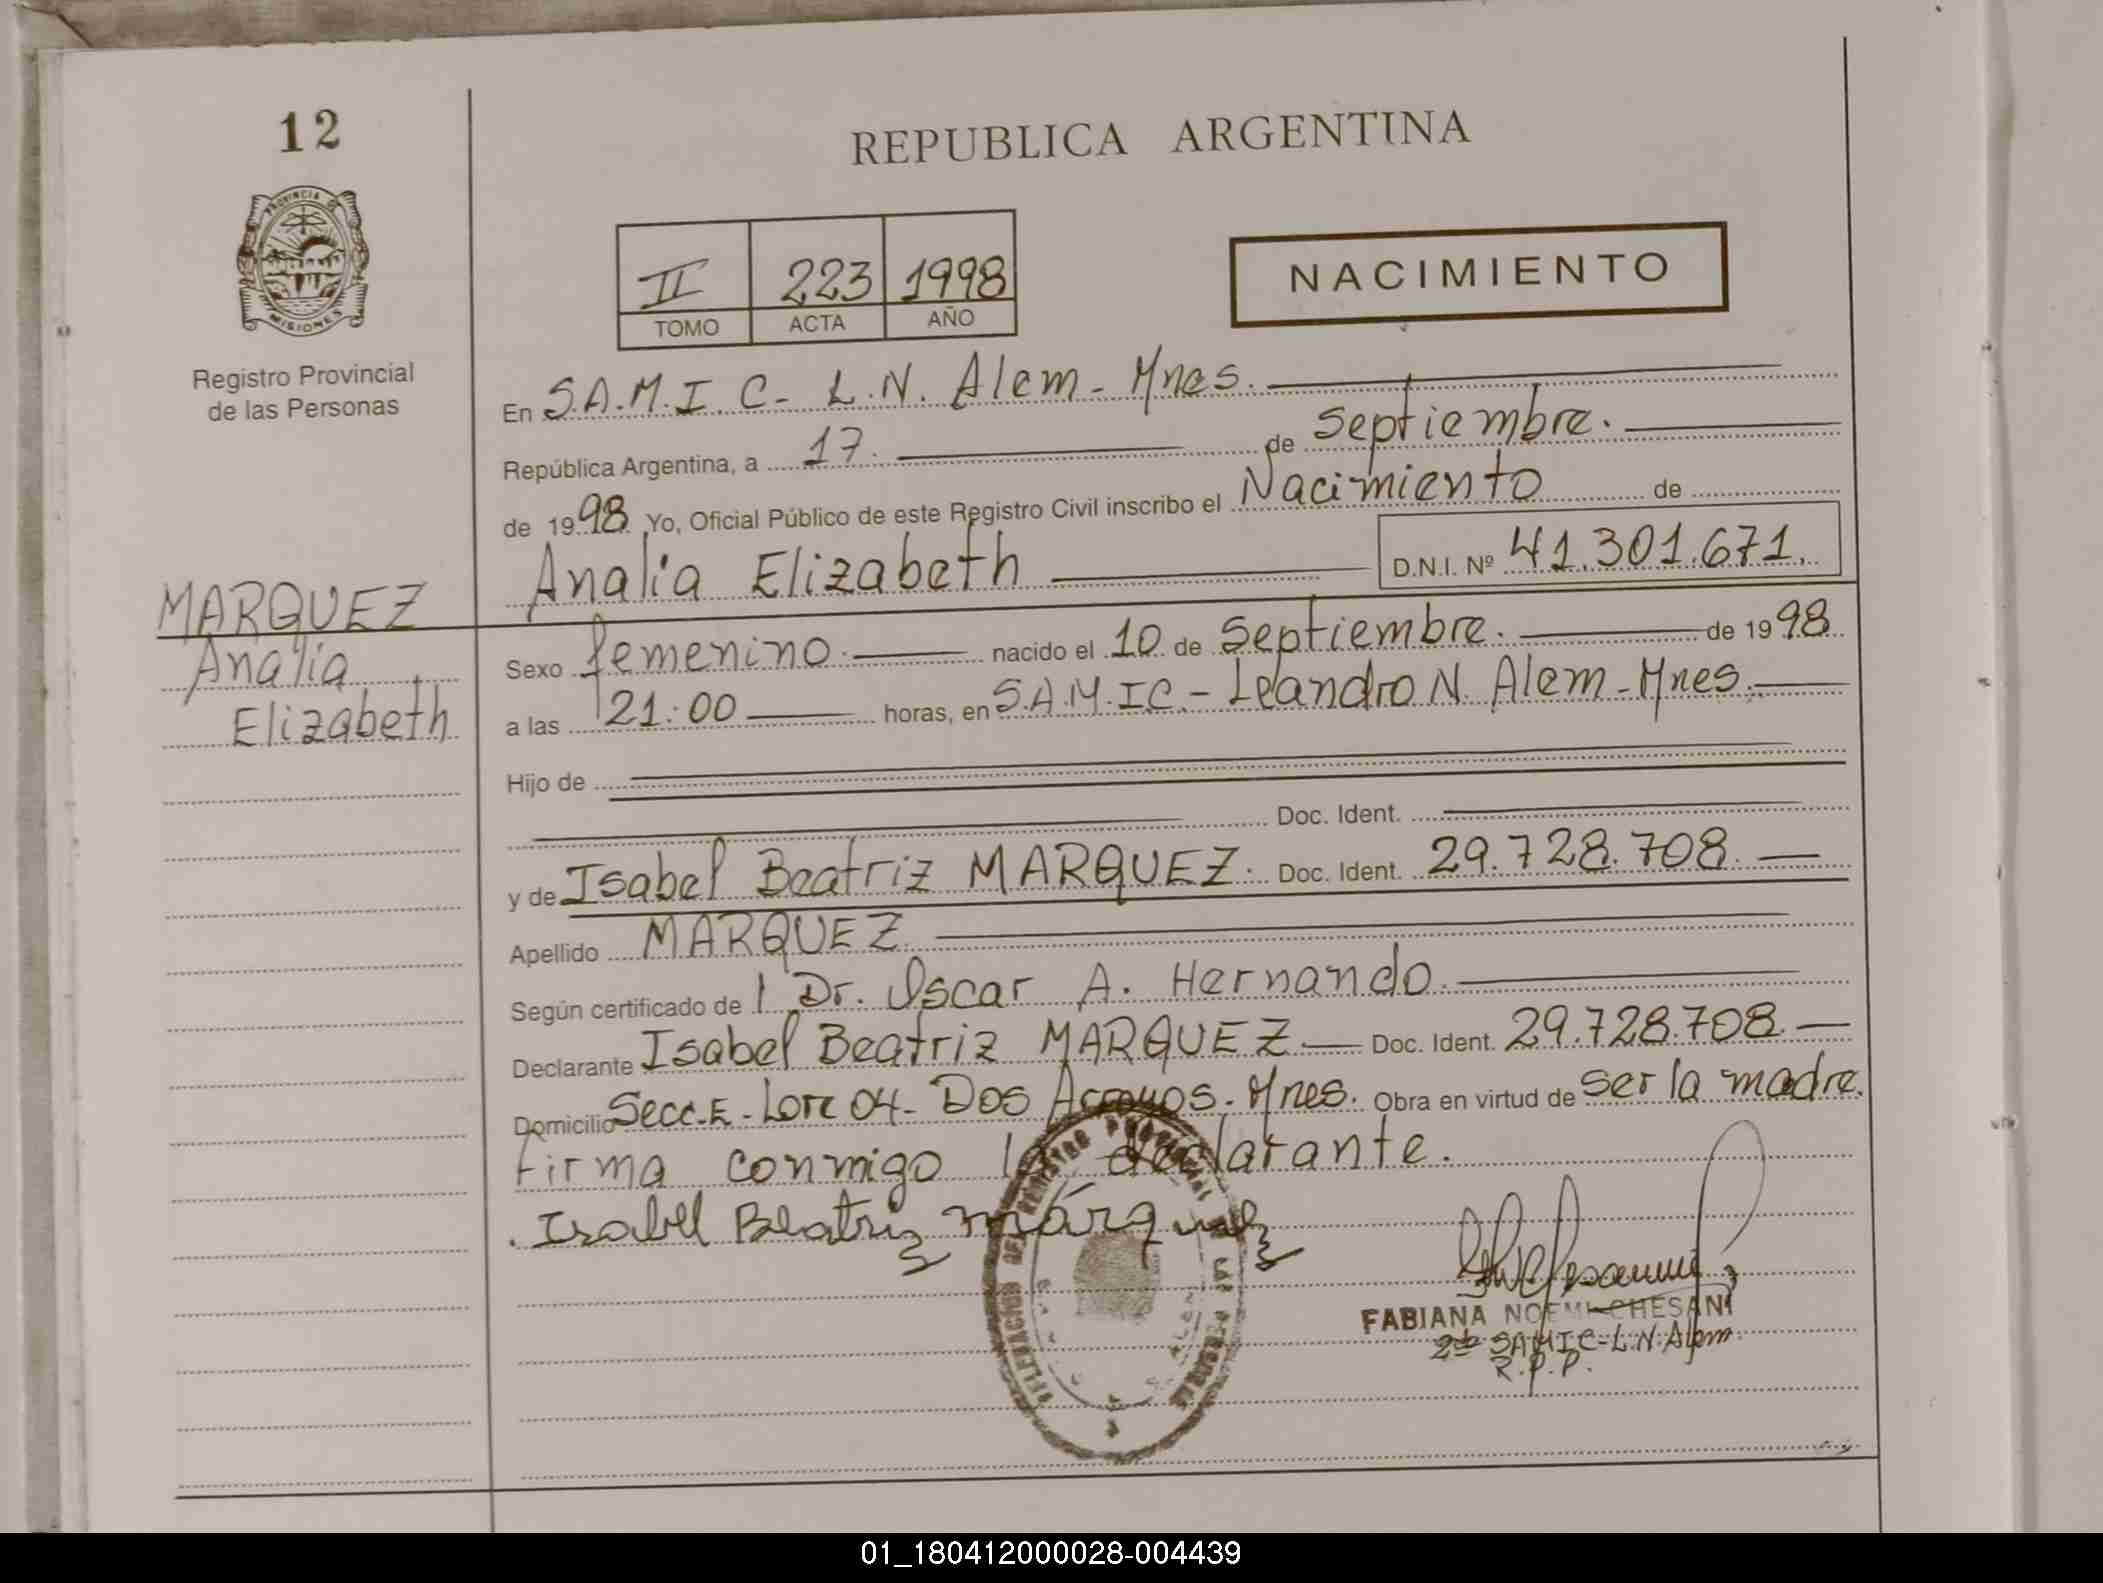 12
REPUBLICA ARGENTINA
PROVINCIA DE
MISIONES
II 223 1998
TOMO ACTA AÑO
NACIMIENTO
Registro Provincial
de las Personas
En S.A.M.I.C- L.N. Alem- Mnes.
República Argentina, a 17. de septiembre.
de 1998 Yo, Oficial Público de este Registro Civil inscribo el Nacimiento de
Analía Elizabeth D.N.I. Nº 41.301.671.
MARQUEZ
Analía
Elizabeth
Sexo femenino. nacido el 10 de Septiembre. de 1998
a las 21:00 horas, en S.A.M.I.C.- Leandro N. Alem-Mnes.
Hijo de
Doc. Ident.
y de Isabel Beatriz MARQUEZ. Doc. Ident. 29.728.708.
Apellido MARQUEZ
Según certificado de l Dr. Oscar A. Hernando.
Declarante Isabel Beatriz MARQUEZ Doc. Ident. 29.728.708.
Domicilio Secc.E-Lote 04- Dos Arroyos. Mnes. Obra en virtud de ser la madre.
Firma conmigo la declarante.
Isabel Beatriz márquez
DELEGACION DEL REGISTRO PROVINCIAL DE LAS PERSONAS
FABIANA NOEMI CHESANI
SAMIC-L.N.Alem
R.P.P.
01_180412000028-004439